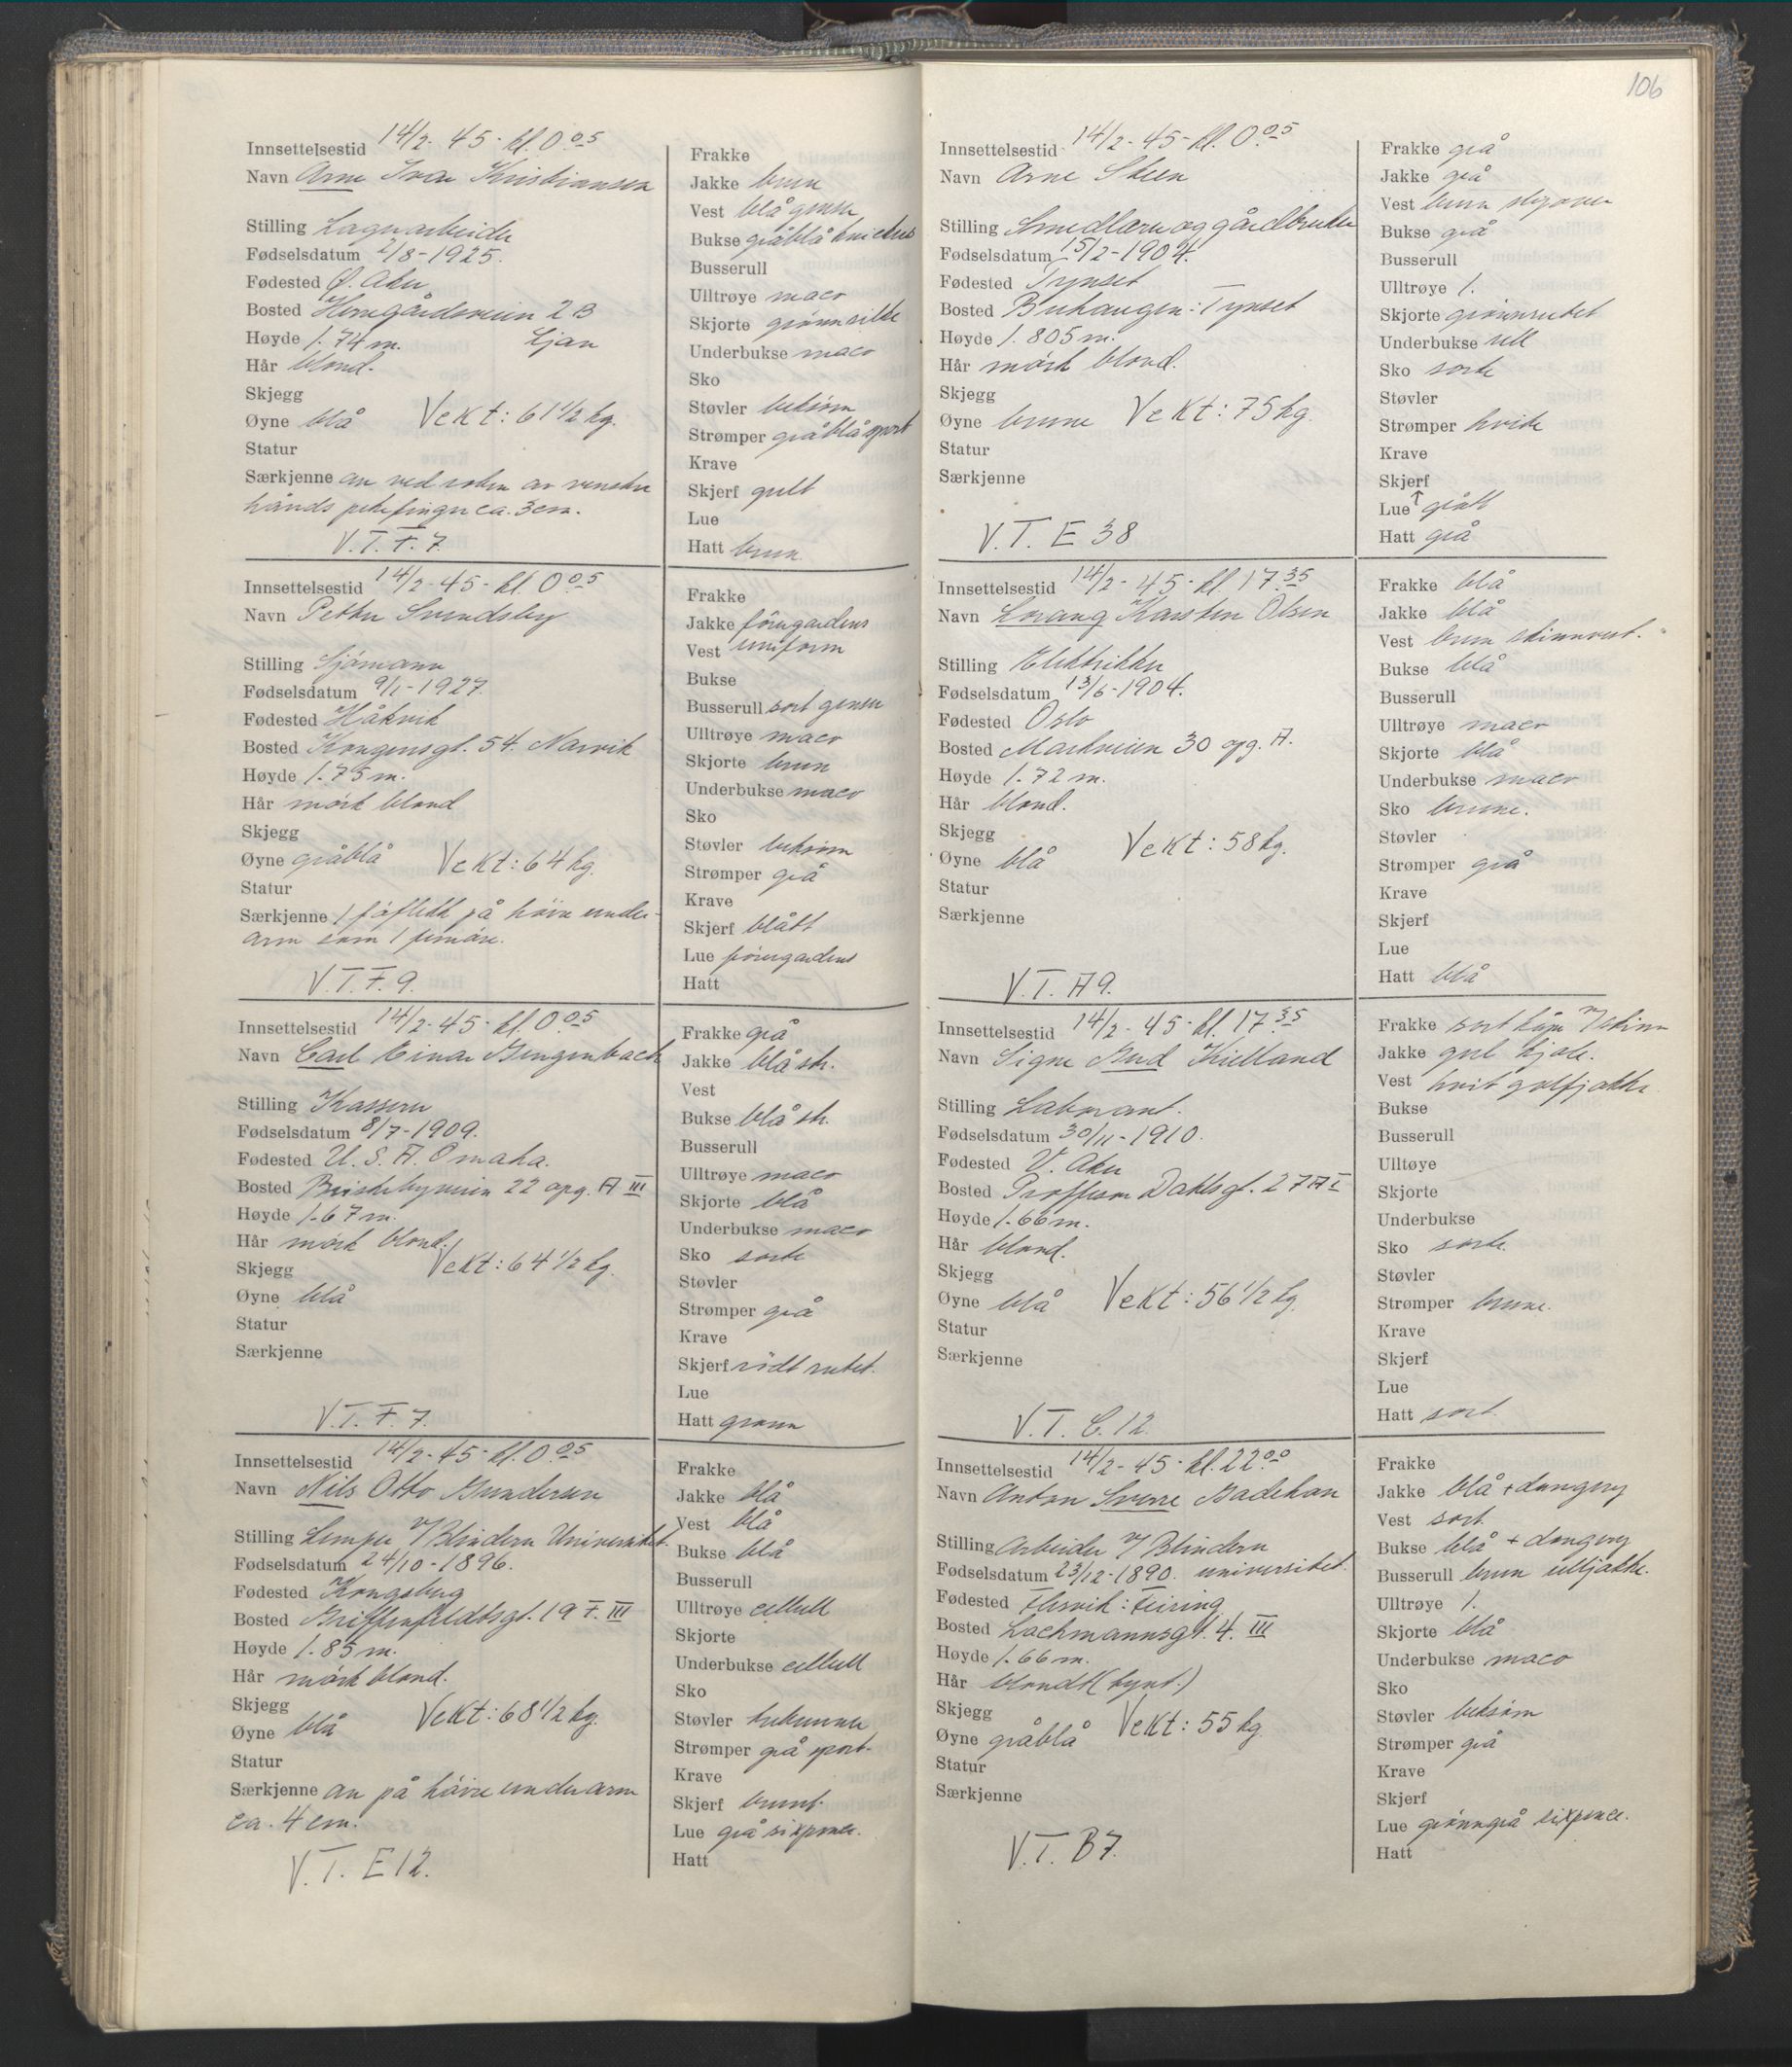 106
Innsettelsestid 14/2-45- kl. 0.05
Navn Arne Ivar Kristiansen
Stilling Lagerarbeider
Fødselsdatum 2/8-1925.
Fødested Ø. Aker
Bosted Herregårdsveien 2 B
Høyde 1.74 m. Ljan
Hår blond.
Skjegg
Øyne blå Vekt: 61 1/2 kg.
Statur
Særkjenne arr ved roten av venstre
hånds pekefinger ca. 3 cm.
V.T. F. 7.
Frakke
Jakke brun
Vest blå genser
Bukse gråblå knickers
Busserull
Ulltrøye maco
Skjorte grønn silke
Underbukse maco
Sko
Støvler beksøm
Strømper gråblå sport
Krave
Skjerf gult
Lue
Hatt brun
Innsettelsestid 14/2-45- kl. 0.05
Navn Petter Svendsby
Stilling Sjømann
Fødselsdatum 9/1-1927.
Fødested Håkvik
Bosted Kongensgt. 54. Narvik
Høyde 1.75 m.
Hår mørk blond
Skjegg
Øyne gråblå Vekt: 64 kg.
Statur
Særkjenne 1 føflekk på høire under-
arm som 1 femøre.
V.T. F. 9.
Frakke
Jakke förergardens
Vest uniform
Bukse
Busserull sort genser
Ulltrøye maco
Skjorte brun
Underbukse maco
Sko
Støvler beksøm
Strømper grå
Krave
Skjerf blått
Lue förergardens
Hatt
Innsettelsestid 14/2-45- kl. 0.05
Navn Carl Einar Gengenbach
Stilling Kasserer
Fødselsdatum 8/7-1909.
Fødested U.S.A. Omaha.
Bosted Briskebyveien 22 opg. A III
Høyde 1.67 m.
Hår mørk blond.
Skjegg Vekt: 64 1/2 kg.
Øyne blå
Statur
Særkjenne
V.T. F. 7.
Frakke grå
Jakke blå str.
Vest
Bukse blå str.
Busserull
Ulltrøye maco
Skjorte blå
Underbukse maco
Sko sorte
Støvler
Strømper grå
Krave
Skjerf rödt rutet.
Lue
Hatt grønn
Innsettelsestid 14/2-45- kl. 0.05
Navn Nils Otto Gundersen
Stilling Lemper v/ Blindern Universitet.
Fødselsdatum 24/10-1896.
Fødested Kongsberg
Bosted Griffenfeldtsgt. 19 F. III
Høyde 1.85 m.
Hår mørk blond.
Skjegg
Øyne blå Vekt: 68 1/2 kg.
Statur
Særkjenne arr på höire underarm
ca. 4 cm.
V.T. E 12.
Frakke
Jakke blå
Vest blå
Bukse blå
Busserull
Ulltrøye cellull
Skjorte
Underbukse cellull
Sko
Støvler
Strømper grå sport-
Krave
Skjerf brunt.
Lue grå sixpence.
Hatt
Innsettelsestid 14/2-45- kl. 0.05
Navn Arne Steen
Stilling Smedlærer og gårdbruker
Fødselsdatum 15/2-1904.
Fødested Tynset
Bosted Brehaugen: Tynset
Høyde 1.805 m.
Hår mørk blond.
Skjegg
Øyne brune Vekt: 75 kg.
Statur
Særkjenne
V.T. E 38
Frakke grå
Jakke grå
Vest brun slipover
Bukse grå
Busserull
Ulltrøye 1.
Skjorte grønnrutet
Underbukse ull
Sko sorte
Støvler
Strømper hvite
Krave
Skjerf
Lue ↑ grått
Hatt grå
Innsettelsestid 14/2-45- kl. 17.35
Navn Lorang Karsten Olsen
Stilling Elektriker
Fødselsdatum 13/6-1904.
Fødested Oslo
Bosted Markveien 30 opg. A.
Høyde 1.72 m.
Hår blond.
Skjegg
Øyne blå Vekt: 58 kg.
Statur
Særkjenne
V.T. A 9.
Frakke blå
Jakke blå
Vest brun skinnvest.
Bukse blå
Busserull
Ulltrøye maco
Skjorte blå
Underbukse maco
Sko brune.
Støvler
Strømper grå
Krave
Skjerf
Lue
Hatt blå
Innsettelsestid 14/2-45- kl. 17.35
Navn Signe Gud Kielland
Stilling Laborant.
Fødselsdatum 30/11-1910.
Fødested V. Aker
Bosted Proffessor Dahlsgt. 27 A I
Høyde 1.66 m.
Hår blond.
Skjegg
Øyne blå Vekt: 56 1/2 kg.
Statur
Særkjenne
V.T. C. 12.
Frakke sort kåpe m/ skinn
Jakke gul kjole.
Vest hvit golfjakke
Bukse
Busserull
Ulltøye
Skjorte
Underbukse
Sko sorte.
Støvler
Strømper brune.
Krave
Skjerf
Lue
Hatt sort.
Innsettelsestid 14/2-45- kl. 22.00
Navn Anton Sverre Badehan
Stilling Arbeider v/ Blindern
Fødselsdatum 23/12-1890. universitet.
Fødested Elsvik: Feiring
Bosted Lachmannsgt. 4. III
Høyde 1.66 m.
Hår blondt (tynt.)
Skjegg
Øyne gråblå Vekt: 55 kg.
Statur
Særkjenne
V.T. B 7.
Frakke
Jakke blå + dongery
Vest sort
Bukse blå + dongery
Busserull brun ulljakke.
Ulltrøye 1.
Skjorte blå
Underbukse maco
Sko
Støvler beksøm
Strømper grå
Krave
Skjerf
Lue grönngrå sixpence.
Hatt